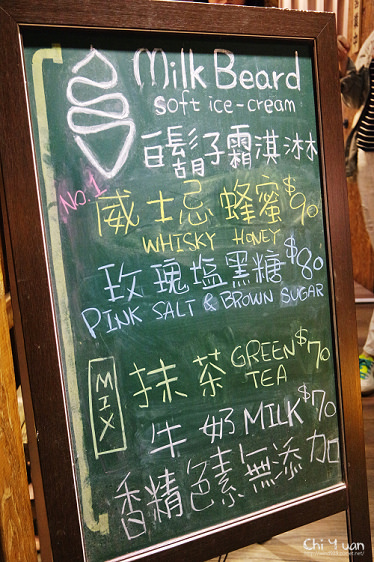 Milk Beard
soft ice-cream
白鬍子霜淇淋
No.1
威士忌蜂蜜$90
WHISKY HONEY
玫瑰塩黑糖$80
PINK SALT & BROWN SUGAR
MIX
抹茶 GREEN TEA $70
牛奶 MILK $70
香精色素無添加
Chi Yuan